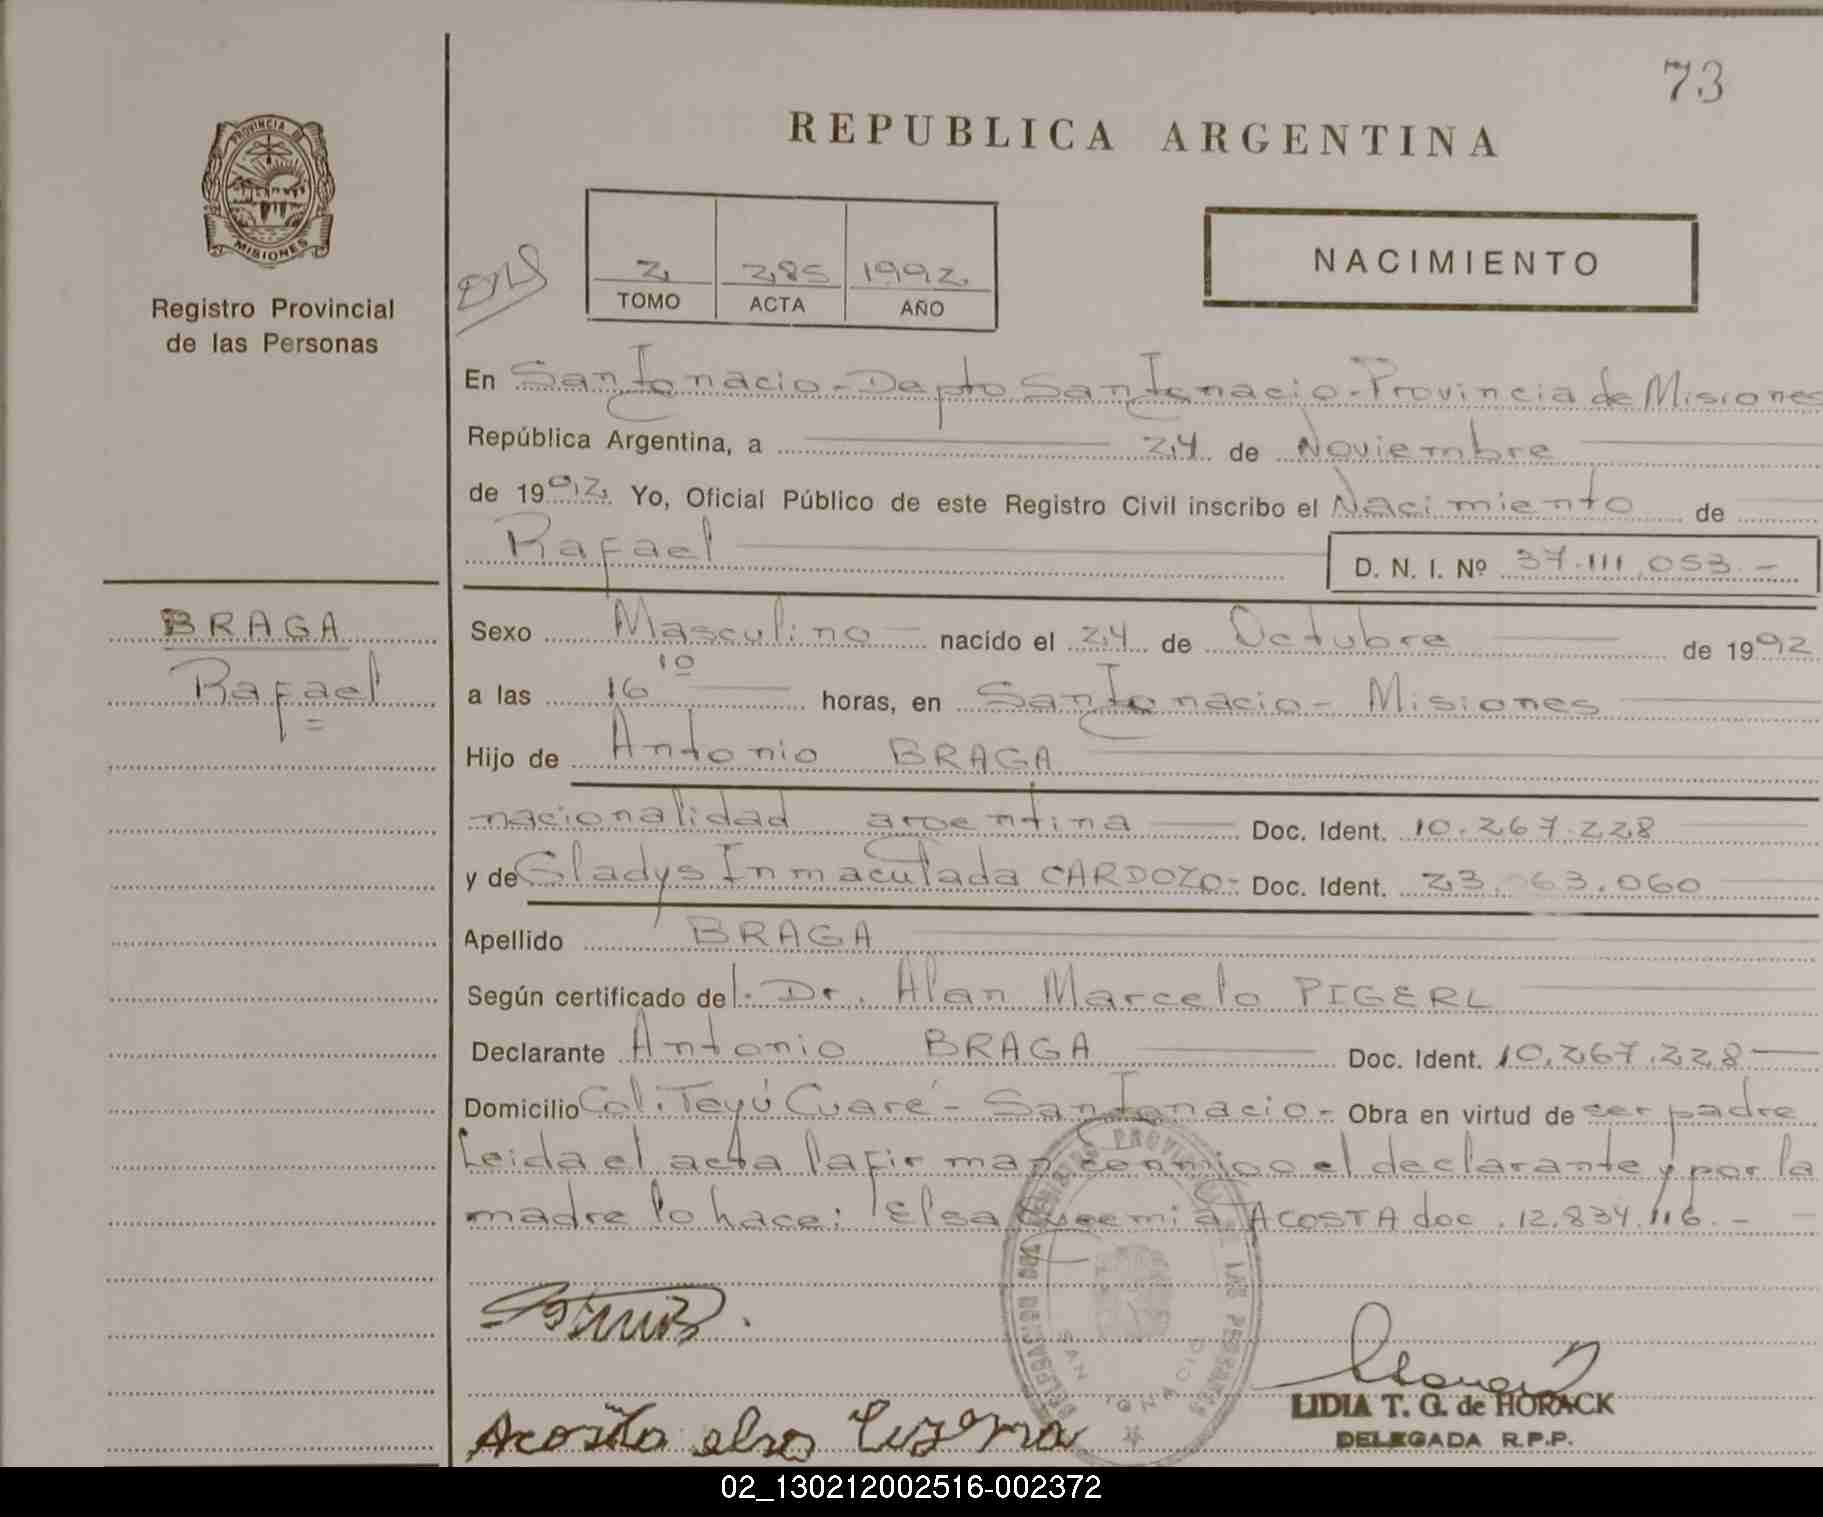 73
REPUBLICA ARGENTINA
PROVINCIA DE
MISIONES
Registro Provincial
de las Personas
2 285 1992
TOMO ACTA AÑO
NACIMIENTO
En San Ignacio - Depto San Ignacio - Provincia de Misiones
República Argentina, a 24 de Noviembre
de 1992 Yo, Oficial Público de este Registro Civil inscribo el Nacimiento de
Rafael D. N. I. Nº 37.111.053.-
BRAGA
Rafael
Sexo Masculino nacido el 24 de Octubre de 1992
a las 16 10 horas, en San Ignacio - Misiones
Hijo de Antonio BRAGA
nacionalidad argentina Doc. Ident. 10.267.228
y de Gladys Inmaculada CARDOZO- Doc. Ident. 23. 63.060
Apellido BRAGA
Según certificado del. Dr. Alan Marcelo PIGERL
Declarante Antonio BRAGA Doc. Ident. 10.267.228
Domicilio Col. Teyú Cuaré - San Ignacio.- Obra en virtud de ser padre
Leida el acta la firman conmigo el declarante y por la
madre lo hace: Elsa Eugemia ACOSTA doc. 12.834.116.-
Acosta elsa
LIDIA T. G. de HORACK
DELEGADA R.P.P.
02_130212002516-002372